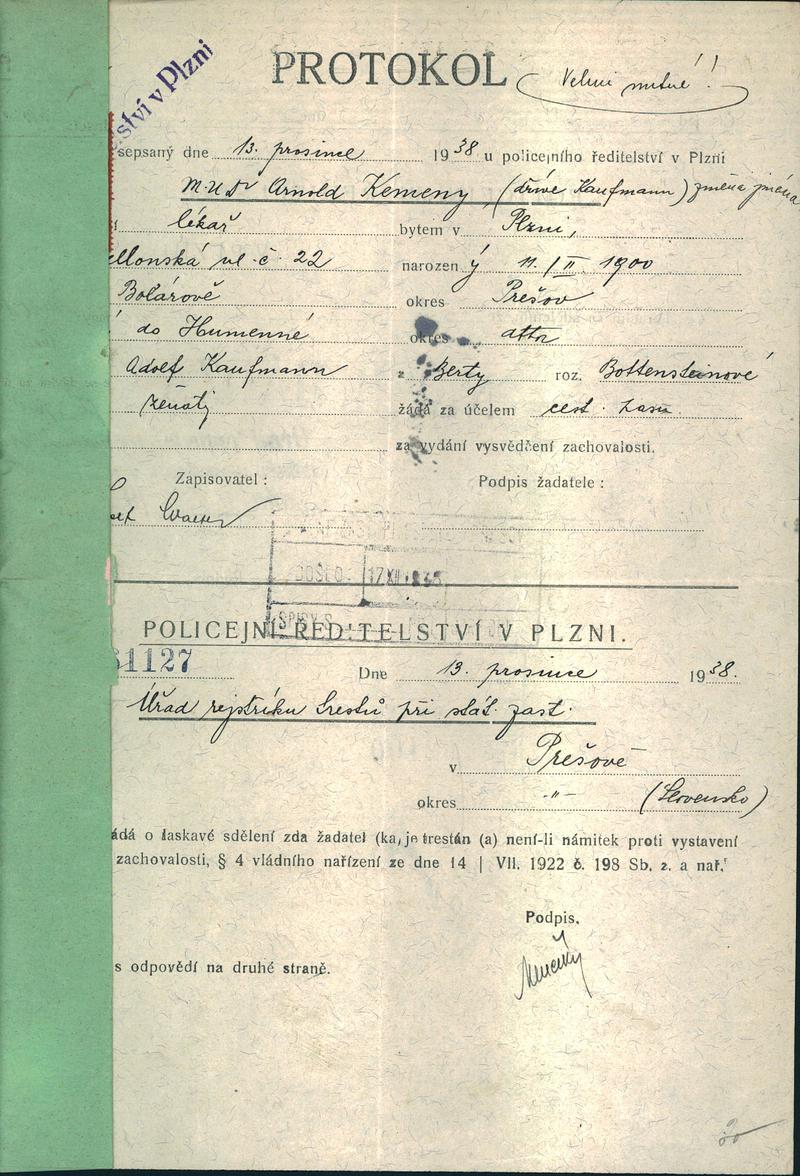 ství v Plzni
PROTOKOL
Velmi nutné!!
sepsaný dne 13. prosince 1938 u policejního ředitelství v Plzni
M.U.Dr Arnold Kemeny (dříve Kaufmann) změna jména
lékař bytem v Plzni,
ellonská ul. č. 22 narozený 11./II. 1900
okres Prešov
do Humenné okres dtto
Adolf Kaufmann z Berty roz. Bottensteinové
ženatý žádá za účelem cest. pasu
za vydání vysvědčení zachovalosti.
Zapisovatel: Podpis žadatele:
DOŠLO: 17.XII.1938
SPISY S
POLICEJNÍ ŘEDITELSTVÍ V PLZNI.
31127 Dne 13. prosince 1938.
Úřad rejstříku trestů při stát. zast.
v Prešově
okres -"- (Slovensko)
ádá o laskavé sdělení zda žadatel (ka) je trestán (a) není-li námitek proti vystavení
zachovalosti, § 4 vládního nařízení ze dne 14 | VII. 1922 č. 198 Sb. z. a nař.
Podpis.
s odpovědí na druhé straně.